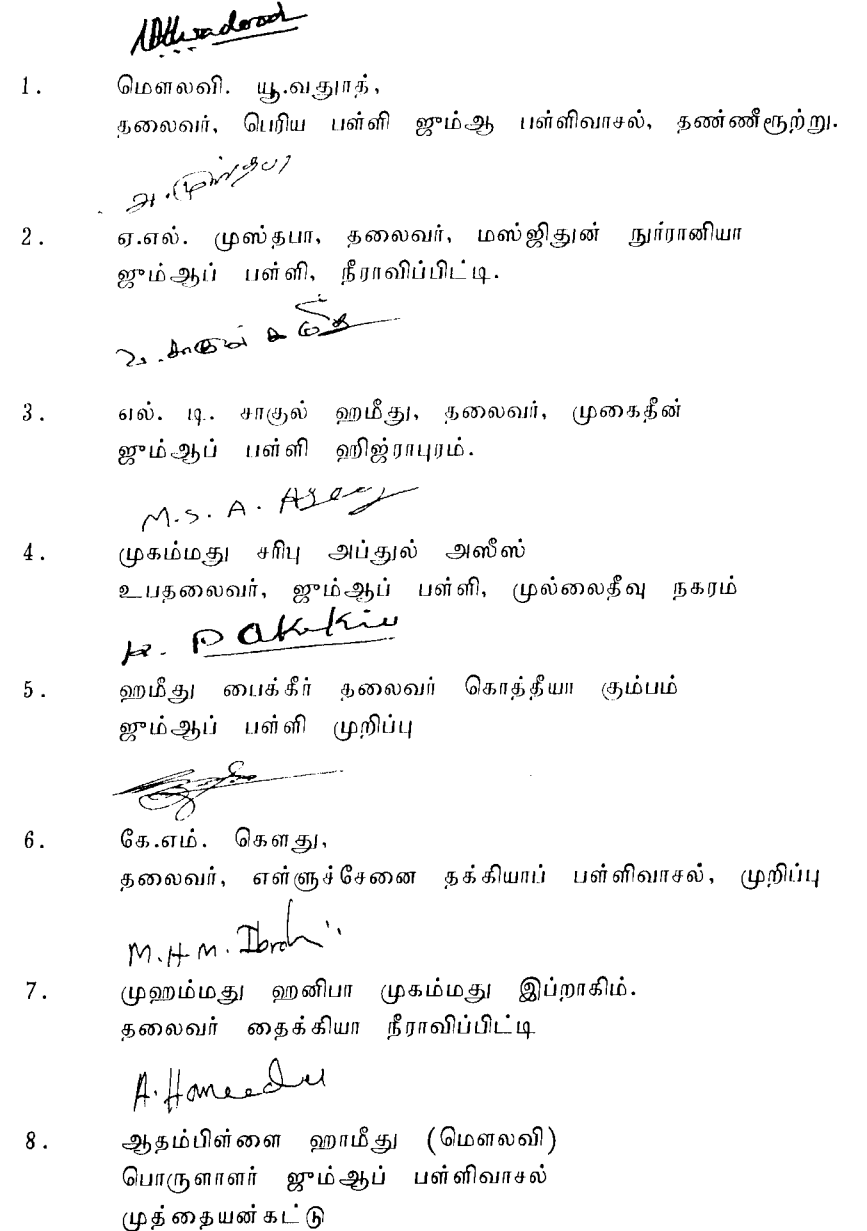 1. மௌலவி. யூ.வதுாத்,
தலைவர், பெரிய பள்ளி ஜும்ஆ பள்ளிவாசல், தண்ணீரூற்று.
அ.முஸ்தபா
2. ஏ.எல். முஸ்தபா, தலைவர், மஸ்ஜிதுன் நுர்ரானியா
ஜும்ஆப் பள்ளி, நீராவிப்பிட்டி.
3. எல். டி. சாகுல் ஹமீது, தலைவர், முகைதீன்
ஜும்ஆப் பள்ளி ஹிஜ்ராபுரம்.
M.S. A.
4. முகம்மது சரிபு அப்துல் அஸீஸ்
உபதலைவர், ஜும்ஆப் பள்ளி, முல்லைதீவு நகரம்
5. ஹமீது பைக்கீர் தலைவர் கொத்தீயா கும்பம்
ஜும்ஆப் பள்ளி முறிப்பு
6. கே.எம். கௌது,
தலைவர், எள்ளுச்சேனை தக்கியாப் பள்ளிவாசல், முறிப்பு
M.H.M.
7. முஹம்மது ஹனிபா முகம்மது இப்றாகிம்.
தலைவர் தைக்கியா நீராவிப்பிட்டி
A.
8. ஆதம்பிள்ளை ஹாமீது (மௌலவி)
பொருளாளர் ஜும்ஆப் பள்ளிவாசல்
முத்தையன்கட்டு